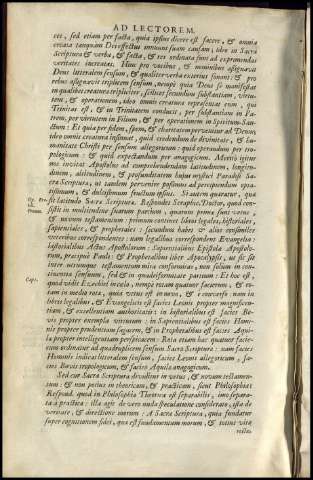 AD LECTOREM.
res, sed etiam per facta, quia ipsius dicere est facere, & omnia
creata tanquam Dei effectus innuunt suam causam, ideo in Sacra
Scriptura & verba, & facta, & res ordinata sunt ad exprimendas
veritates increatas. Hinc pro vocibus, & nominibus assignavit
Deus litteralem sensum, & qualiter verba exterius sonant: & pro
rebus assignavit triplicem sensum, nempè quia Deus se manifestat
in qualibet creatura tripliciter, scilicet secundùm substantiam, virtu-
tem, & operationem, ideo omnis creatura repræsentat eum, qui
Trinitas est, & in Trinitatem conducit, per substantiam in Pa-
trem, per virtutem in Filium, & per operationem in Spiritum San-
ctum: Et quia per fidem, spem, & charitatem pervenitur ad Deum,
ideo omnis creatura insinuat, quid credendum de divinitate, & hu-
manitate Christi per sensum allegoricum: quid operandum per tro-
pologicum: & quid expectandum per anagogicum. Meritò igitur
nos invitat Apostolus ad comprehendendum latitudinem, longitu-
dinem, altitudinem, & profunditatem hujus mystici Paradisi Sa-
cra Scriptura, ut tandem pervenire possimus ad percipiendum opta-
tissimum, & dulcissimum fructum ipsius. Si autem quæratur, quæ
sit latitudo Sacræ Scripturæ. Respondet Seraphic. Doctor, quod con-
sistit in multitudine suarum partium, quarum prima sunt vetus,
& novum testamentum: primum continet libros legales, historiales,
sapientiales, & prophetales: secundum habet & alios consimiles
veteribus correspondentes: nam legalibus correspondent Evangelia:
historialibus Actus Apostolorum: Sapientialibus Epistolæ Apostolo-
rum, præcipuè Pauli: & Prophetalibus liber Apocalypsis, ut sic sit
inter utrumque testamentum mira conformitas, non solùm in con-
tinentia sensuum, sed & in quadriformitate partium: Et hoc est,
quod vidit Ezechiel
Cap. 1.
nempè rotam quatuor facierum, & ro-
tam in medio rotæ, quia vetus est in novo, & è converso: nam in
libris legalibus, & Evangelicis est facies Leonis propter magnificen-
tiam, & excellentiam authoritatis: in historialibus est facies Bo-
vis propter exempla virtutum: in Sapientialibus est facies Homi-
nis propter prudentiam sagacem, & in Prophetalibus est facies Aqui-
læ propter intelligentiam perspicacem. Rota etiam hæc quatuor facie-
rum ordinatur ad quadruplicem sensum Sacræ Scripturæ: nam facies
Hominis indicat litteralem sensum, facies Leonis allegoricum, fa-
cies Bovis tropologicum, & facies Aquilæ anagogicum.
Sed cur Sacra Scriptura dividitur in vetus, & novum testamen-
tum, & non potius in theoricam, & practicam, sicut Philosophia?
Respond. quod in Philosophia Theorica est separabilis, imò separa-
ta à practica: illa agit de vera nuda speculatione consideratio, ista de
veritate, & directione morum: At Sacra Scriptura, quia fundatur
super cognitionem fidei, quæ est fundamentum morum, & totius vitæ
rectæ,